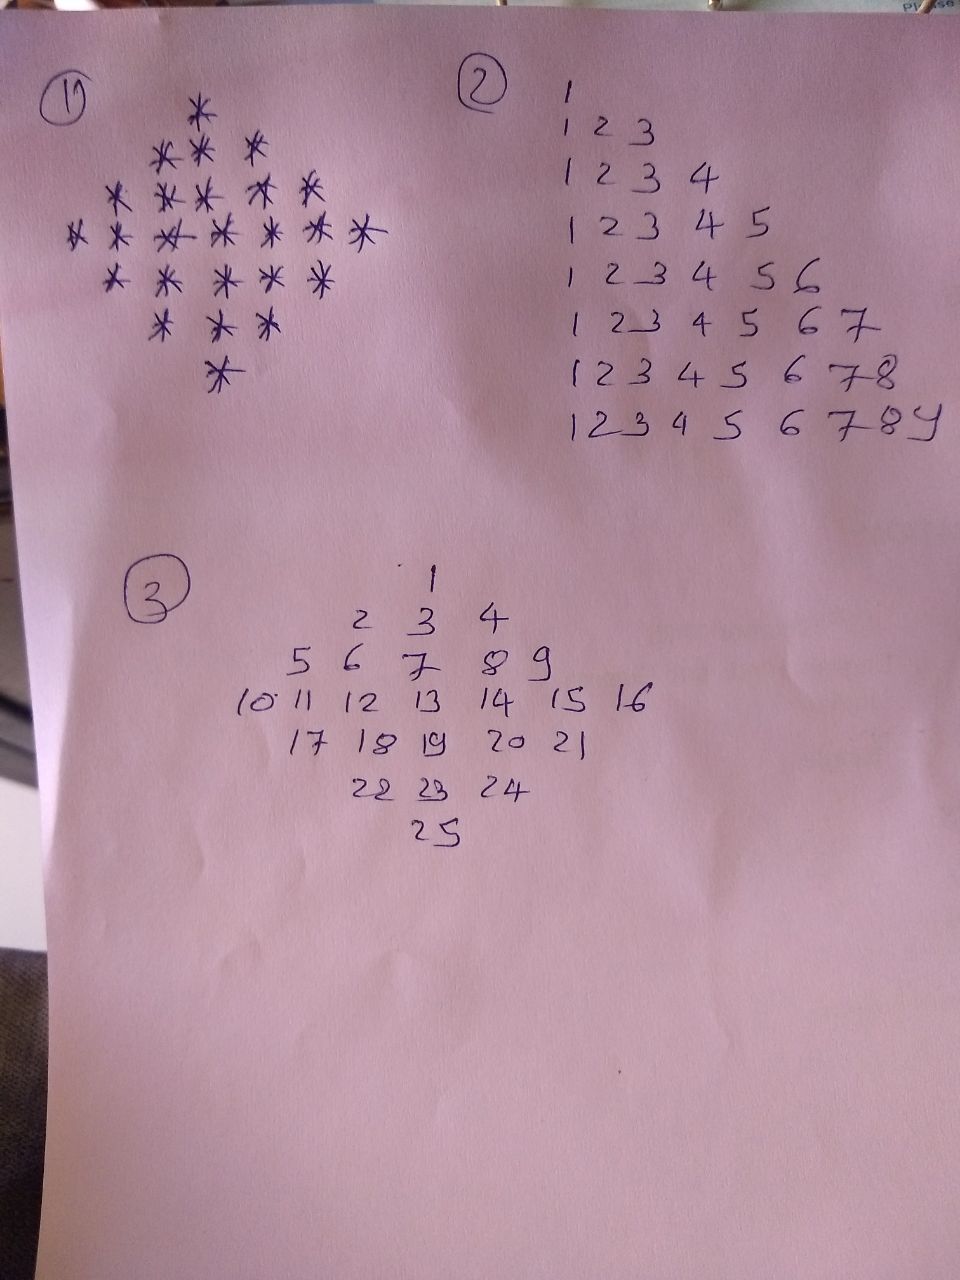 1)
*
* * *
* * * * *
* * * * * * *
* * * * *
* * *
*
2
1
1 2 3
1 2 3 4
1 2 3 4 5
1 2 3 4 5 6
1 2 3 4 5 6 7
1 2 3 4 5 6 7 8
1 2 3 4 5 6 7 8 9
3
1
2 3 4
5 6 7 8 9
10 11 12 13 14 15 16
17 18 19 20 21
22 23 24
25